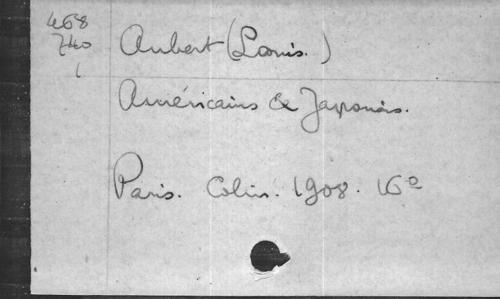 468
740
1
Aubert (Louis.)
Américains & Japonais.
Paris. Colin. 1908. 16º